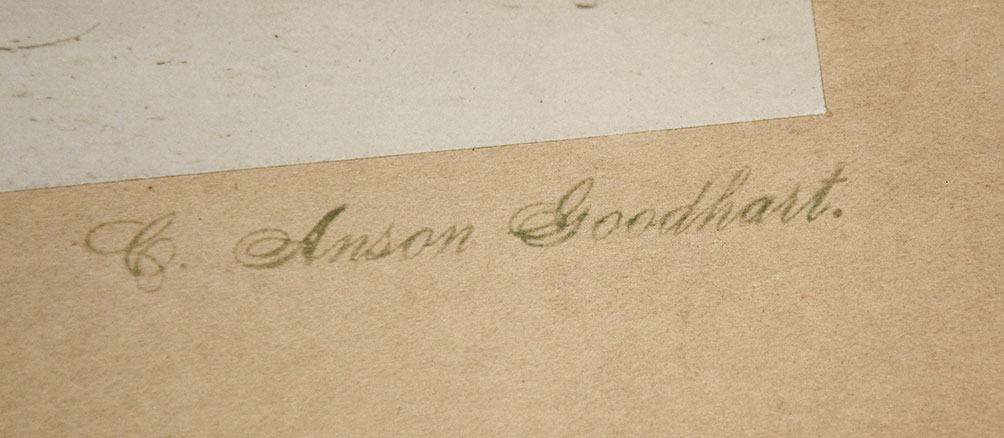 C. Anson Goodhart.